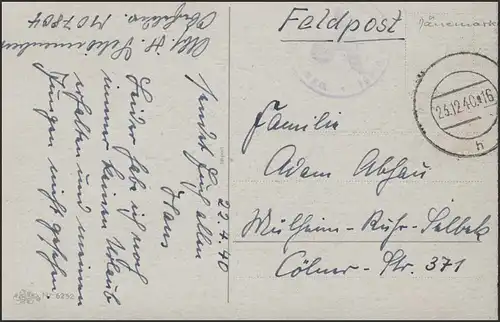 Abs. H.
Feldpostnr. M07804
sendet Euch allen
Hans
22.4.40
Leider hab ich noch
immer keinen Urlaub
erhalten und meinen
Jungen nicht gesehen
Nr. 6252
Feldpost
Dänemark
23.12.40.-16
h
Familie
Adam Abhau
Mülheim-Ruhr-Selbeck
Cölner-Str. 371